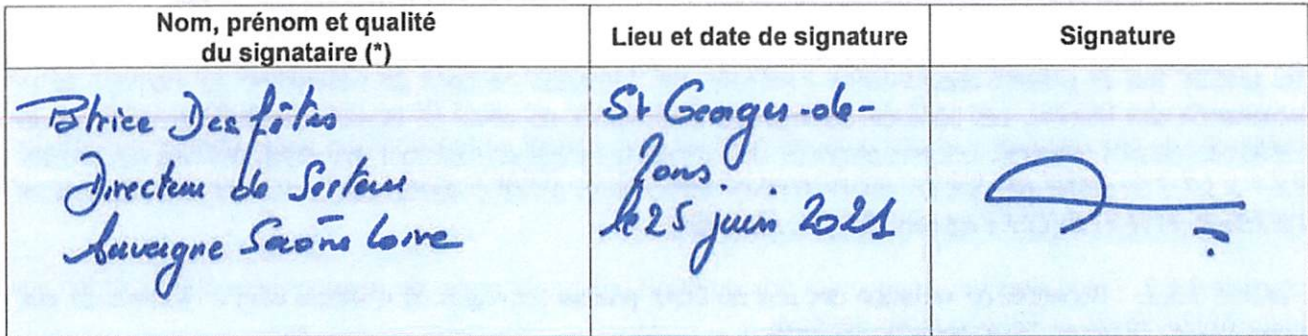 Nom, prénom et qualité
du signataire (*)
Lieu et date de signature
Signature
Directeur de Secteur
Auvergne Saône Loire
St Georges-de-
le 25 juin 2021